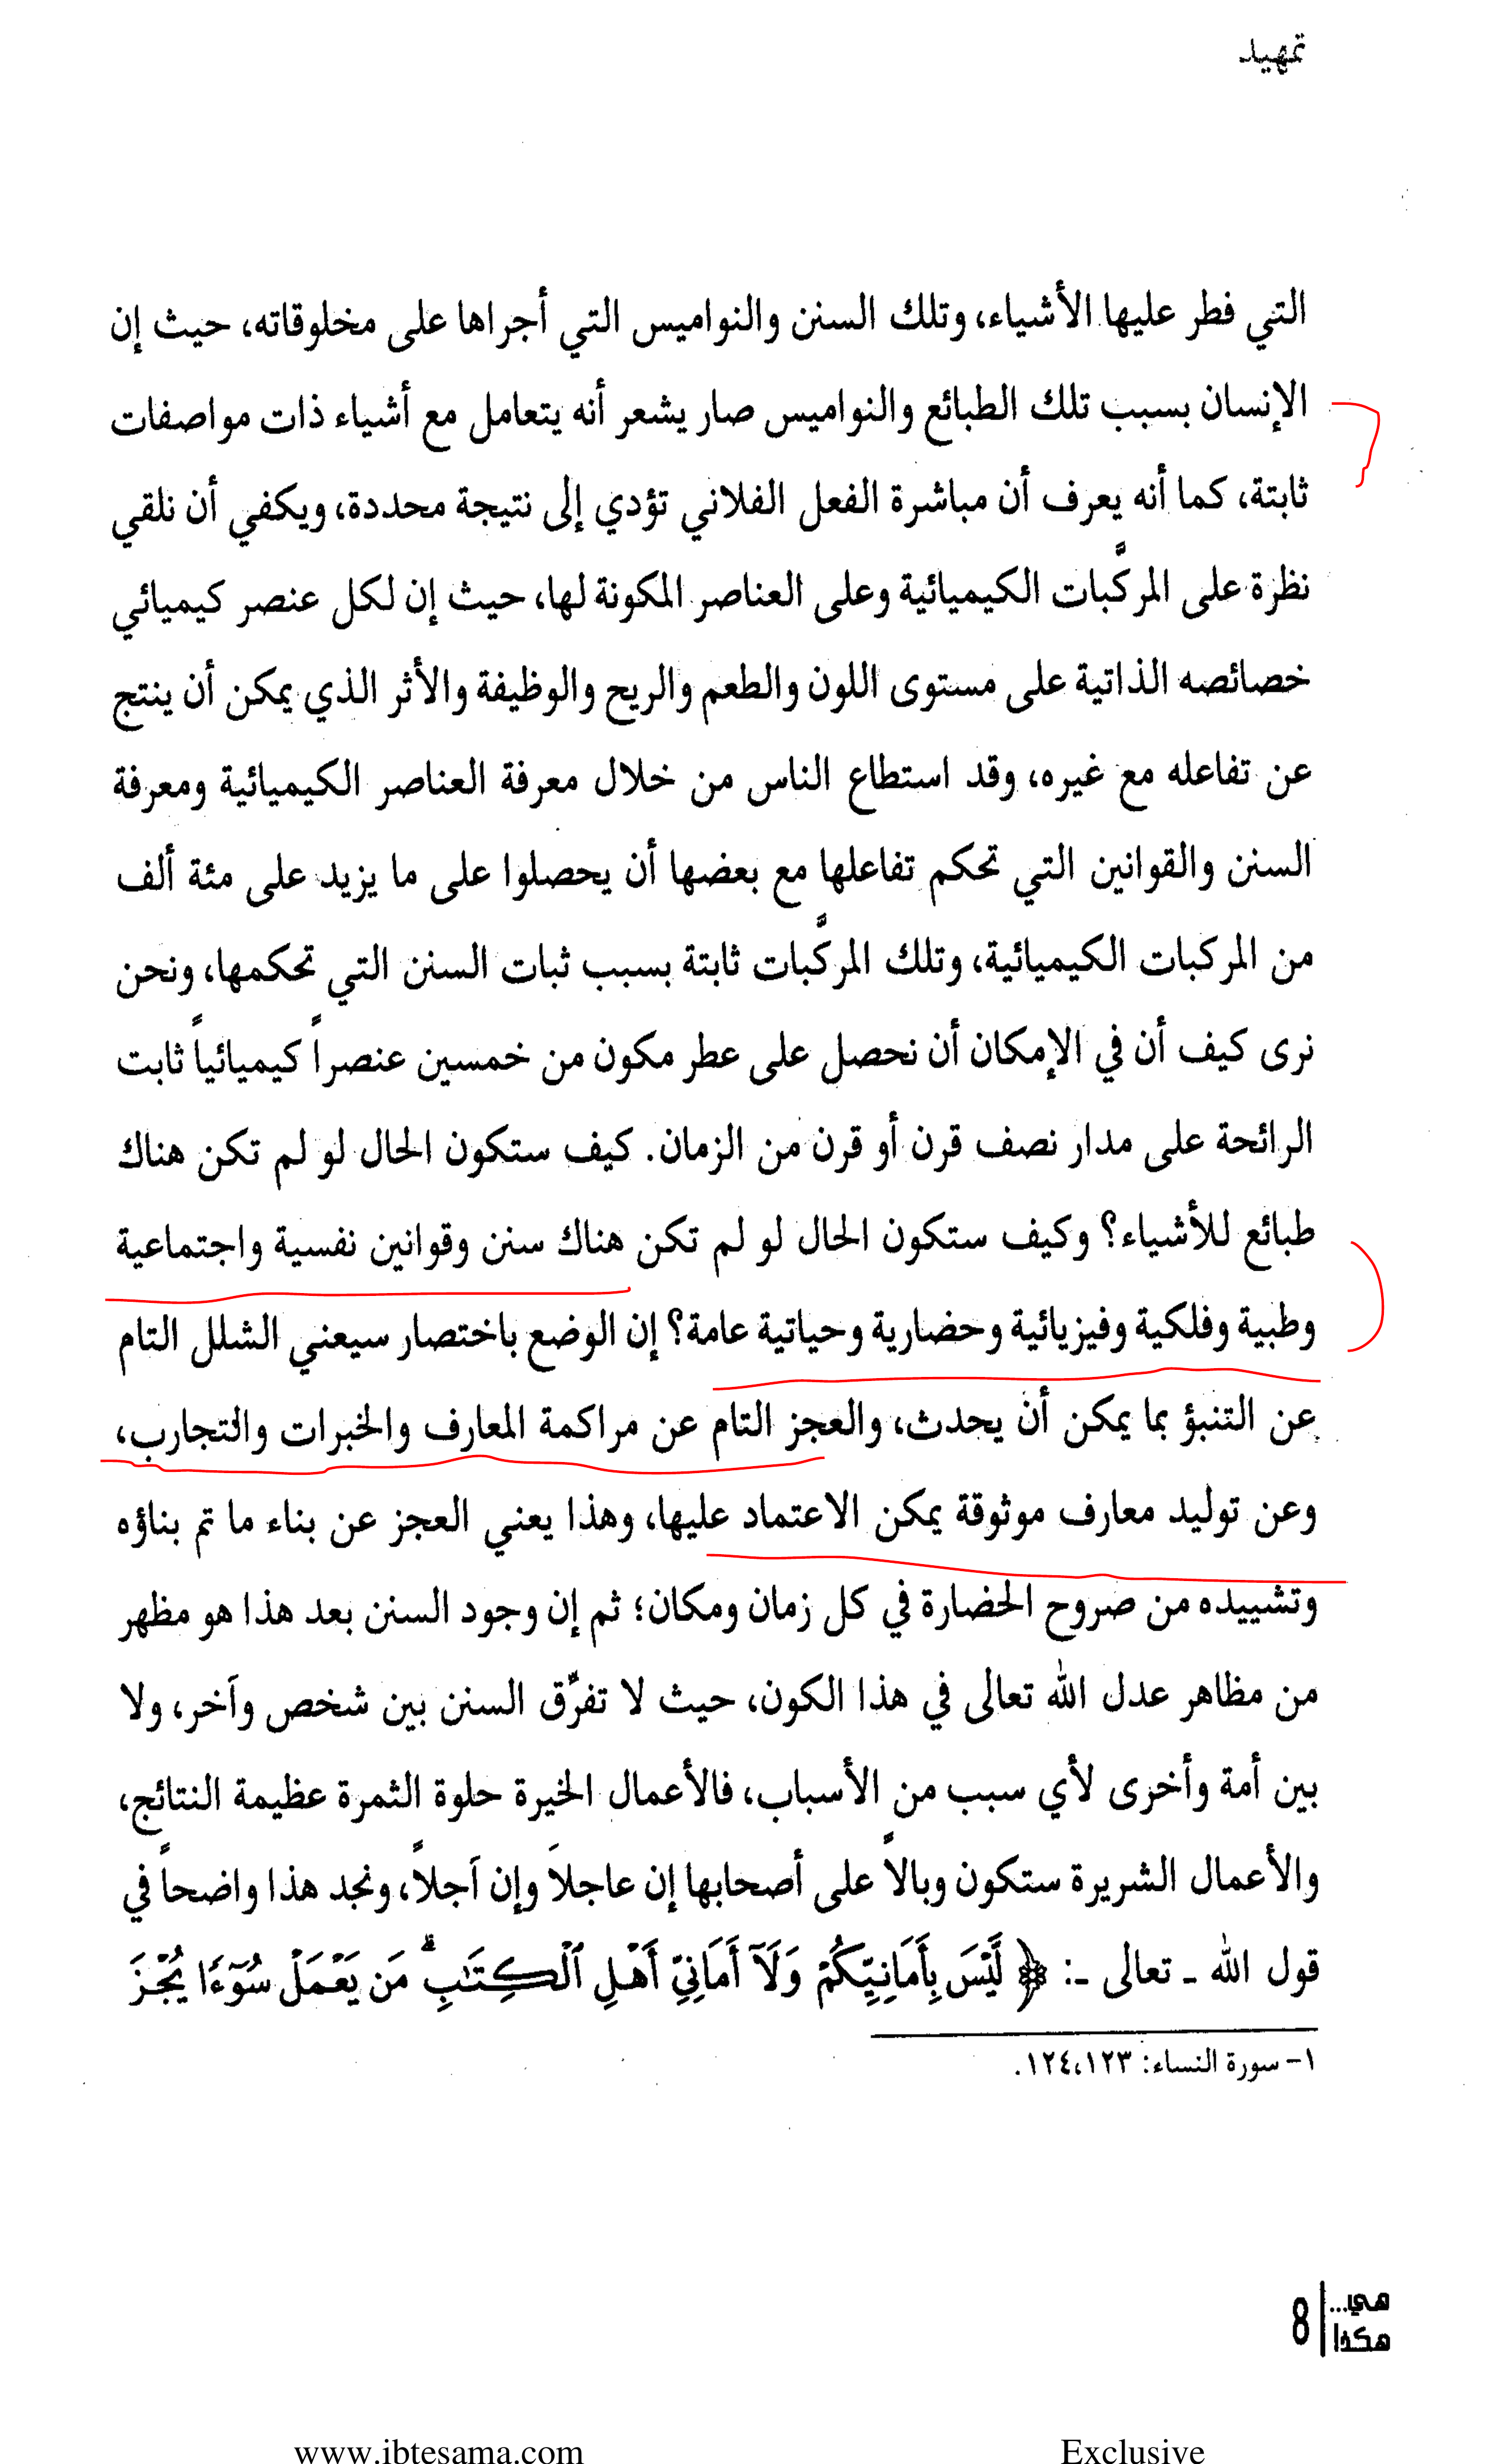 تمهيد
التي فطر عليها الأشياء، وتلك السنن والنواميس التي أجراها على مخلوقاته، حيث إن
الإنسان بسبب تلك الطبائع والنواميس صار يشعر أنه يتعامل مع أشياء ذات مواصفات
ثابتة، كما أنه يعرف أن مباشرة الفعل الفلاني تؤدي إلى نتيجة محددة، ويكفي أن نلقي
نظرة على المركَّبات الكيميائية وعلى العناصر المكونة لها، حيث إن لكل عنصر كيميائي
خصائصه الذاتية على مستوى اللون والطعم والريح والوظيفة والأثر الذي يمكن أن ينتج
عن تفاعله مع غيره، وقد استطاع الناس من خلال معرفة العناصر الكيميائية ومعرفة
السنن والقوانين التي تحكم تفاعلها مع بعضها أن يحصلوا على ما يزيد على مئة ألف
من المركبات الكيميائية، وتلك المركَّبات ثابتة بسبب ثبات السنن التي تحكمها، ونحن
نرى كيف أن في الإمكان أن نحصل على عطر مكون من خمسين عنصراً كيميائياً ثابت
الرائحة على مدار نصف قرن أو قرن من الزمان. كيف ستكون الحال لو لم تكن هناك
طبائع للأشياء؟ وكيف ستكون الحال لو لم تكن هناك سنن وقوانين نفسية واجتماعية
وطبية وفلكية وفيزيائية وحضارية وحياتية عامة؟ إن الوضع باختصار سيعني الشلل التام
عن التنبؤ بما يمكن أن يحدث، والعجز التام عن مراكمة المعارف والخبرات والتجارب،
وعن توليد معارف موثوقة يمكن الاعتماد عليها، وهذا يعني العجز عن بناء ما تم بناؤه
وتشييده من صروح الحضارة في كل زمان ومكان؛ ثم إن وجود السنن بعد هذا هو مظهر
من مظاهر عدل الله تعالى في هذا الكون، حيث لا تفرِّق السنن بين شخص وآخر، ولا
بين أمة وأخرى لأي سبب من الأسباب، فالأعمال الخيرة حلوة الثمرة عظيمة النتائج،
والأعمال الشريرة ستكون وبالاً على أصحابها إن عاجلاً وإن آجلاً، ونجد هذا واضحاً في
قول الله ـ تعالى ـ: ﴿ لَّيْسَ بِأَمَانِيِّكُمْ وَلَآ أَمَانِيِّ أَهْلِ ٱلْكِتَـٰبِ ۗ مَن يَعْمَلْ سُوٓءًا يُجْزَ
١- سورة النساء: ١٢٤،١٢٣.
هي...
هكذا
8
www.ibtesama.com Exclusive